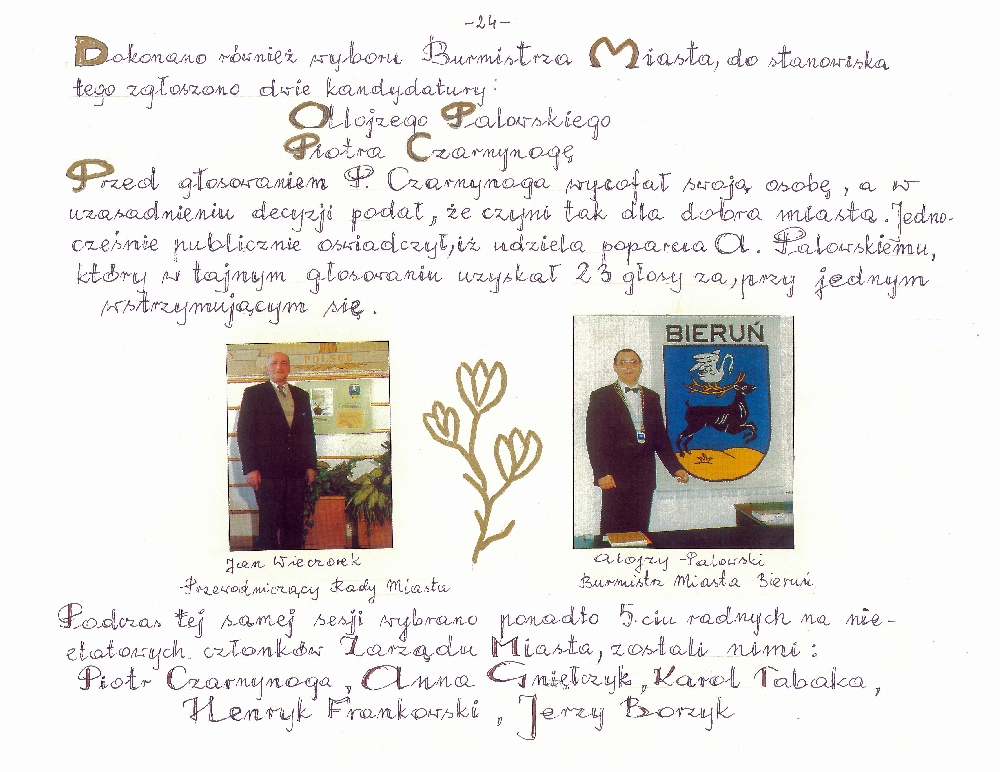 -24-
Dokonano również wyboru Burmistrza Miasta, do stanowiska
tego zgłoszono dwie kandydatury:
Allojzego Palowskiego
Piotra Czarnynogę
Przed głosowaniem P. Czarnynoga wycofał swoją osobę, a w
uzasadnieniu decyzji podał, że czyni tak dla dobra miasta. Jedno-
cześnie publicznie oświadczył, iż udziela poparcia A. Palowskiemu,
który w tajnym głosowaniu uzyskał 23 głosy za, przy jednym
wstrzymującym się.
POLSCE
BIERUŃ
Jan Wieczorek
-Przewodniczący Rady Miasta
Alojzy -Palowski
Burmistrz Miasta Bieruń
Podczas tej samej sesji wybrano ponadto 5-ciu radnych na nie-
etatowych członków Zarządu Miasta, zostali nimi:
Piotr Czarnynoga, Anna Gniełczyk, Karol Tabaka,
Henryk Frankowski, Jerzy Borzyk